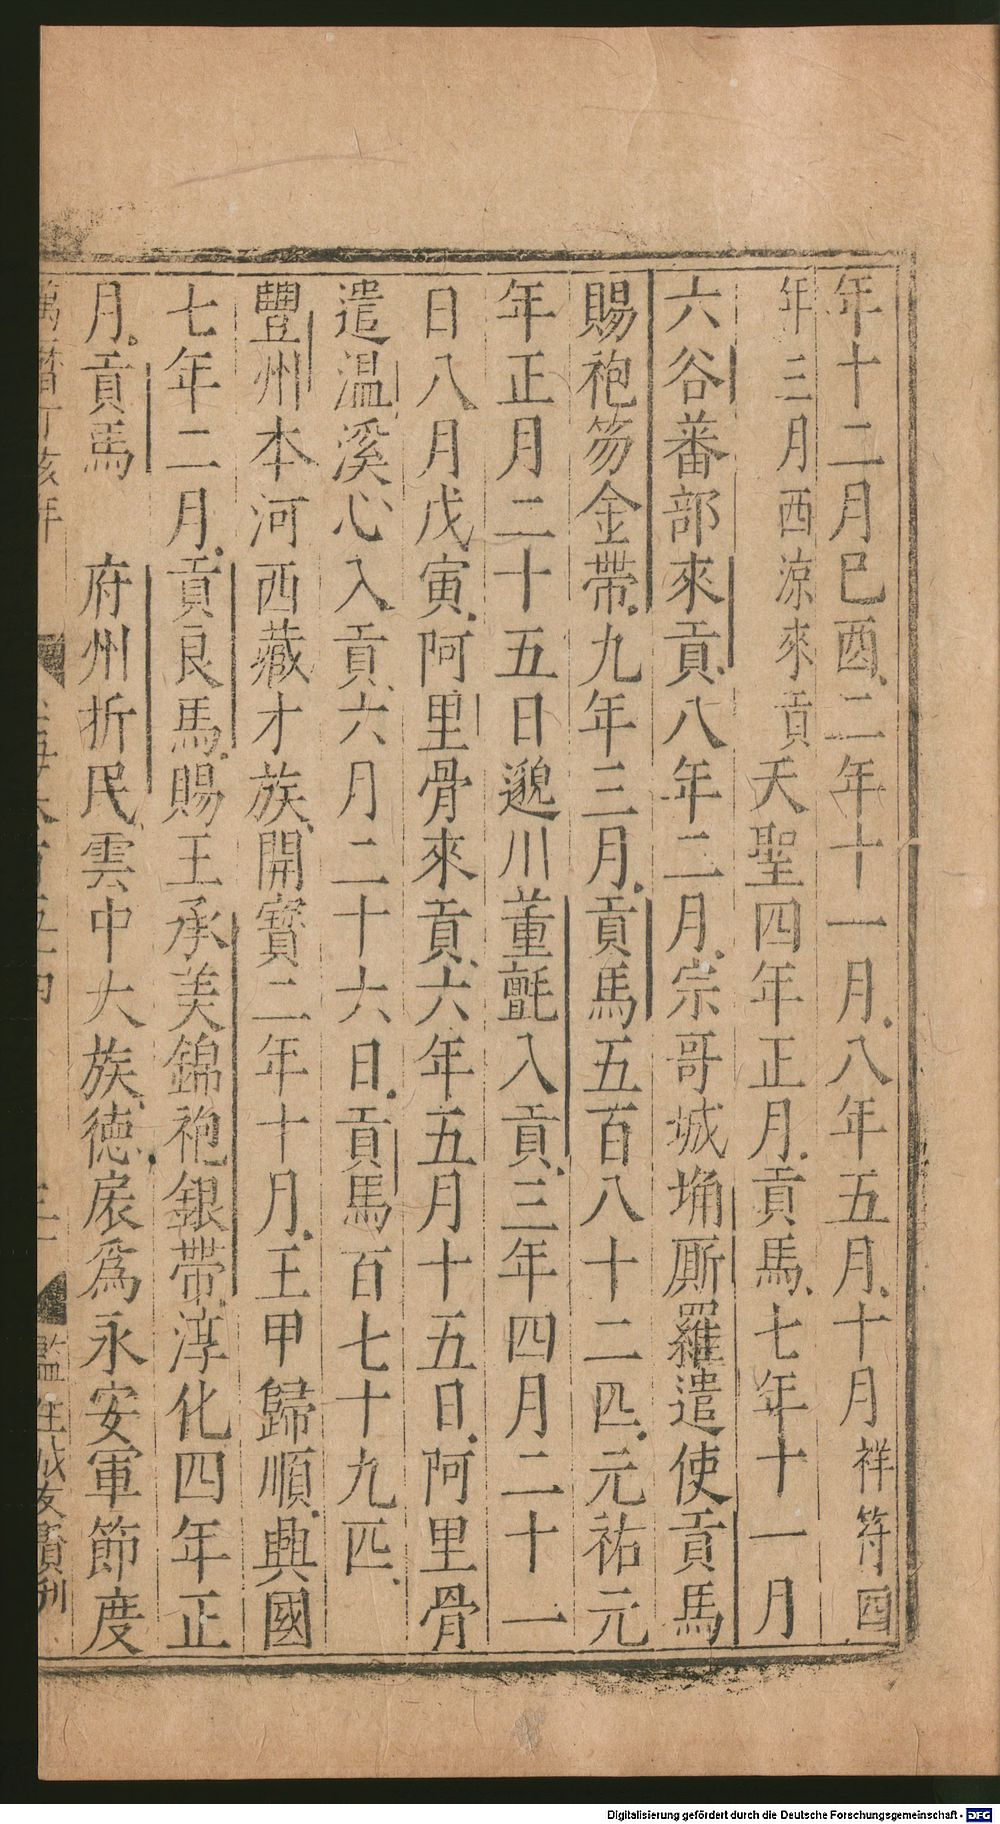 年十二月巳酉二年十一月八年五月十月祥符四
年三月西涼來貢天聖四年正月貢馬七年十一月
六谷蕃部來貢八年二月宗哥城埇厮羅遣使貢馬
賜袍笏金帶九年三月貢馬五百八十二匹元祐元
年正月二十五日邈川董氊入貢三年四月二十一
日八月戊寅阿里骨來貢六年五月十五日阿里骨
遣温溪心入貢六月二十六日貢馬百七十九匹
豐州本河西藏才族開寶二年十月王甲歸順興國
七年二月貢良馬賜王承美錦袍銀帶淳化四年正
月貢馬 府州折民雲中大族德扆爲永安軍節度
萬曆丁亥年 監生成友賡刊
Digitalisierung gefördert durch die Deutsche Forschungsgemeinschaft - DFG